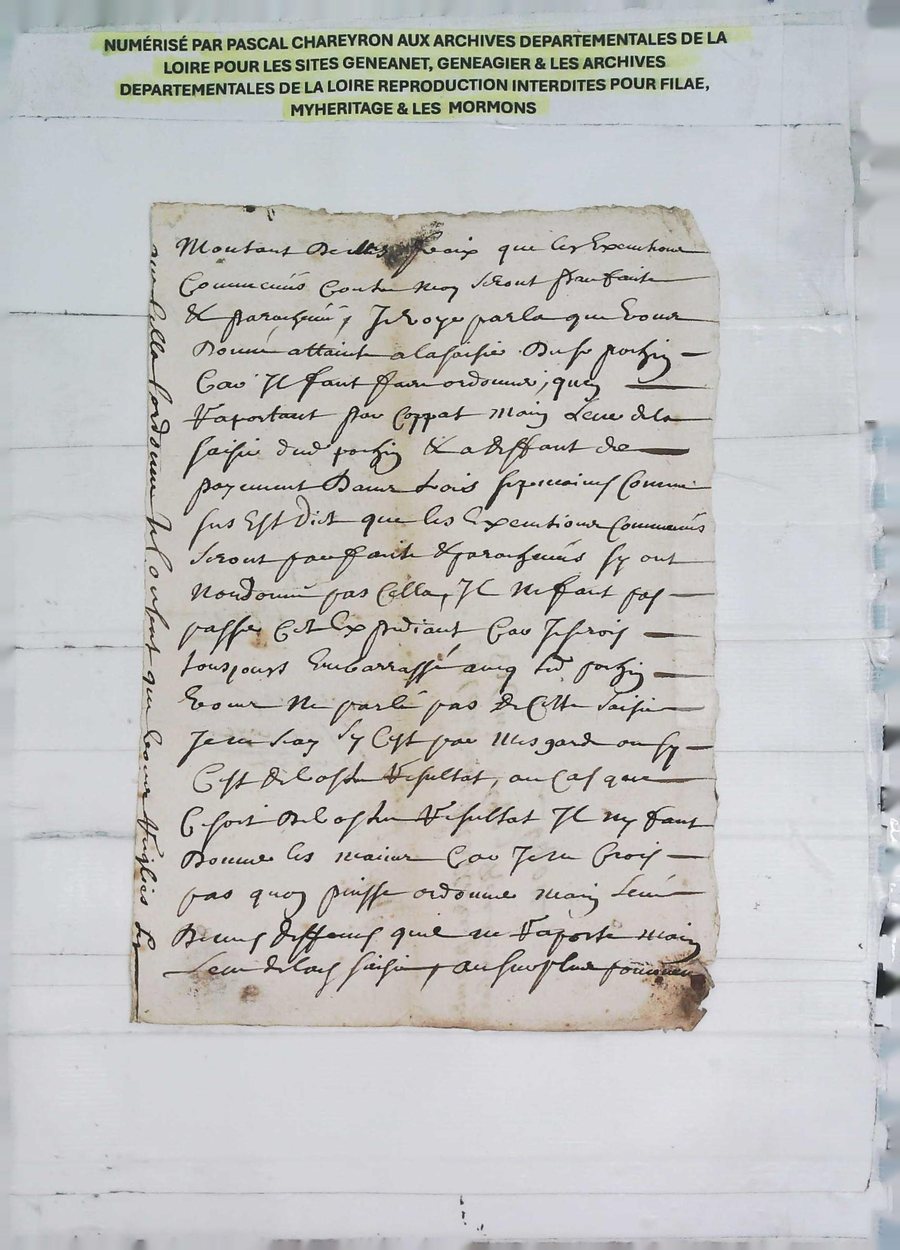 NUMÉRISÉ PAR PASCAL CHAREYRON AUX ARCHIVES DEPARTEMENTALES DE LA
LOIRE POUR LES SITES GENEANET, GENEAGIER & LES ARCHIVES
DEPARTEMENTALES DE LA LOIRE REPRODUCTION INTERDITES POUR FILAE,
MYHERITAGE & LES MORMONS
Montant que les Executions
Commencées Contre moy seront parfaite
& parachevées, Je voye parla que vous
Donné attainte a la saisie Du sr
Car Il faut faire ordonner, quen
raportant par Coppat main Levée de la
saisie dud & a deffaut de
payement Dans trois sepmaines Comme
sus Est Dict que les Executions Commencés
seront parfaite & parachevées sy ont
Nordonne pas Cella, Il ne faut pas
passer Cet Expediant Car Je serois
tousjours Embarrassé avecq led
vous Ne parlé pas de Cette saisie
Je ne scay sy Cest par mesgard ou sy
Cest de vostre resultat, au Cas que
Ce soit De vostre resultat Il ny faut
Donner les mains Car Je ne Crois
pas quon puisse ordonner main Levée
deffenses quil ne raporte main
Levée de la saisie, au surplus
ordonne Il que vous